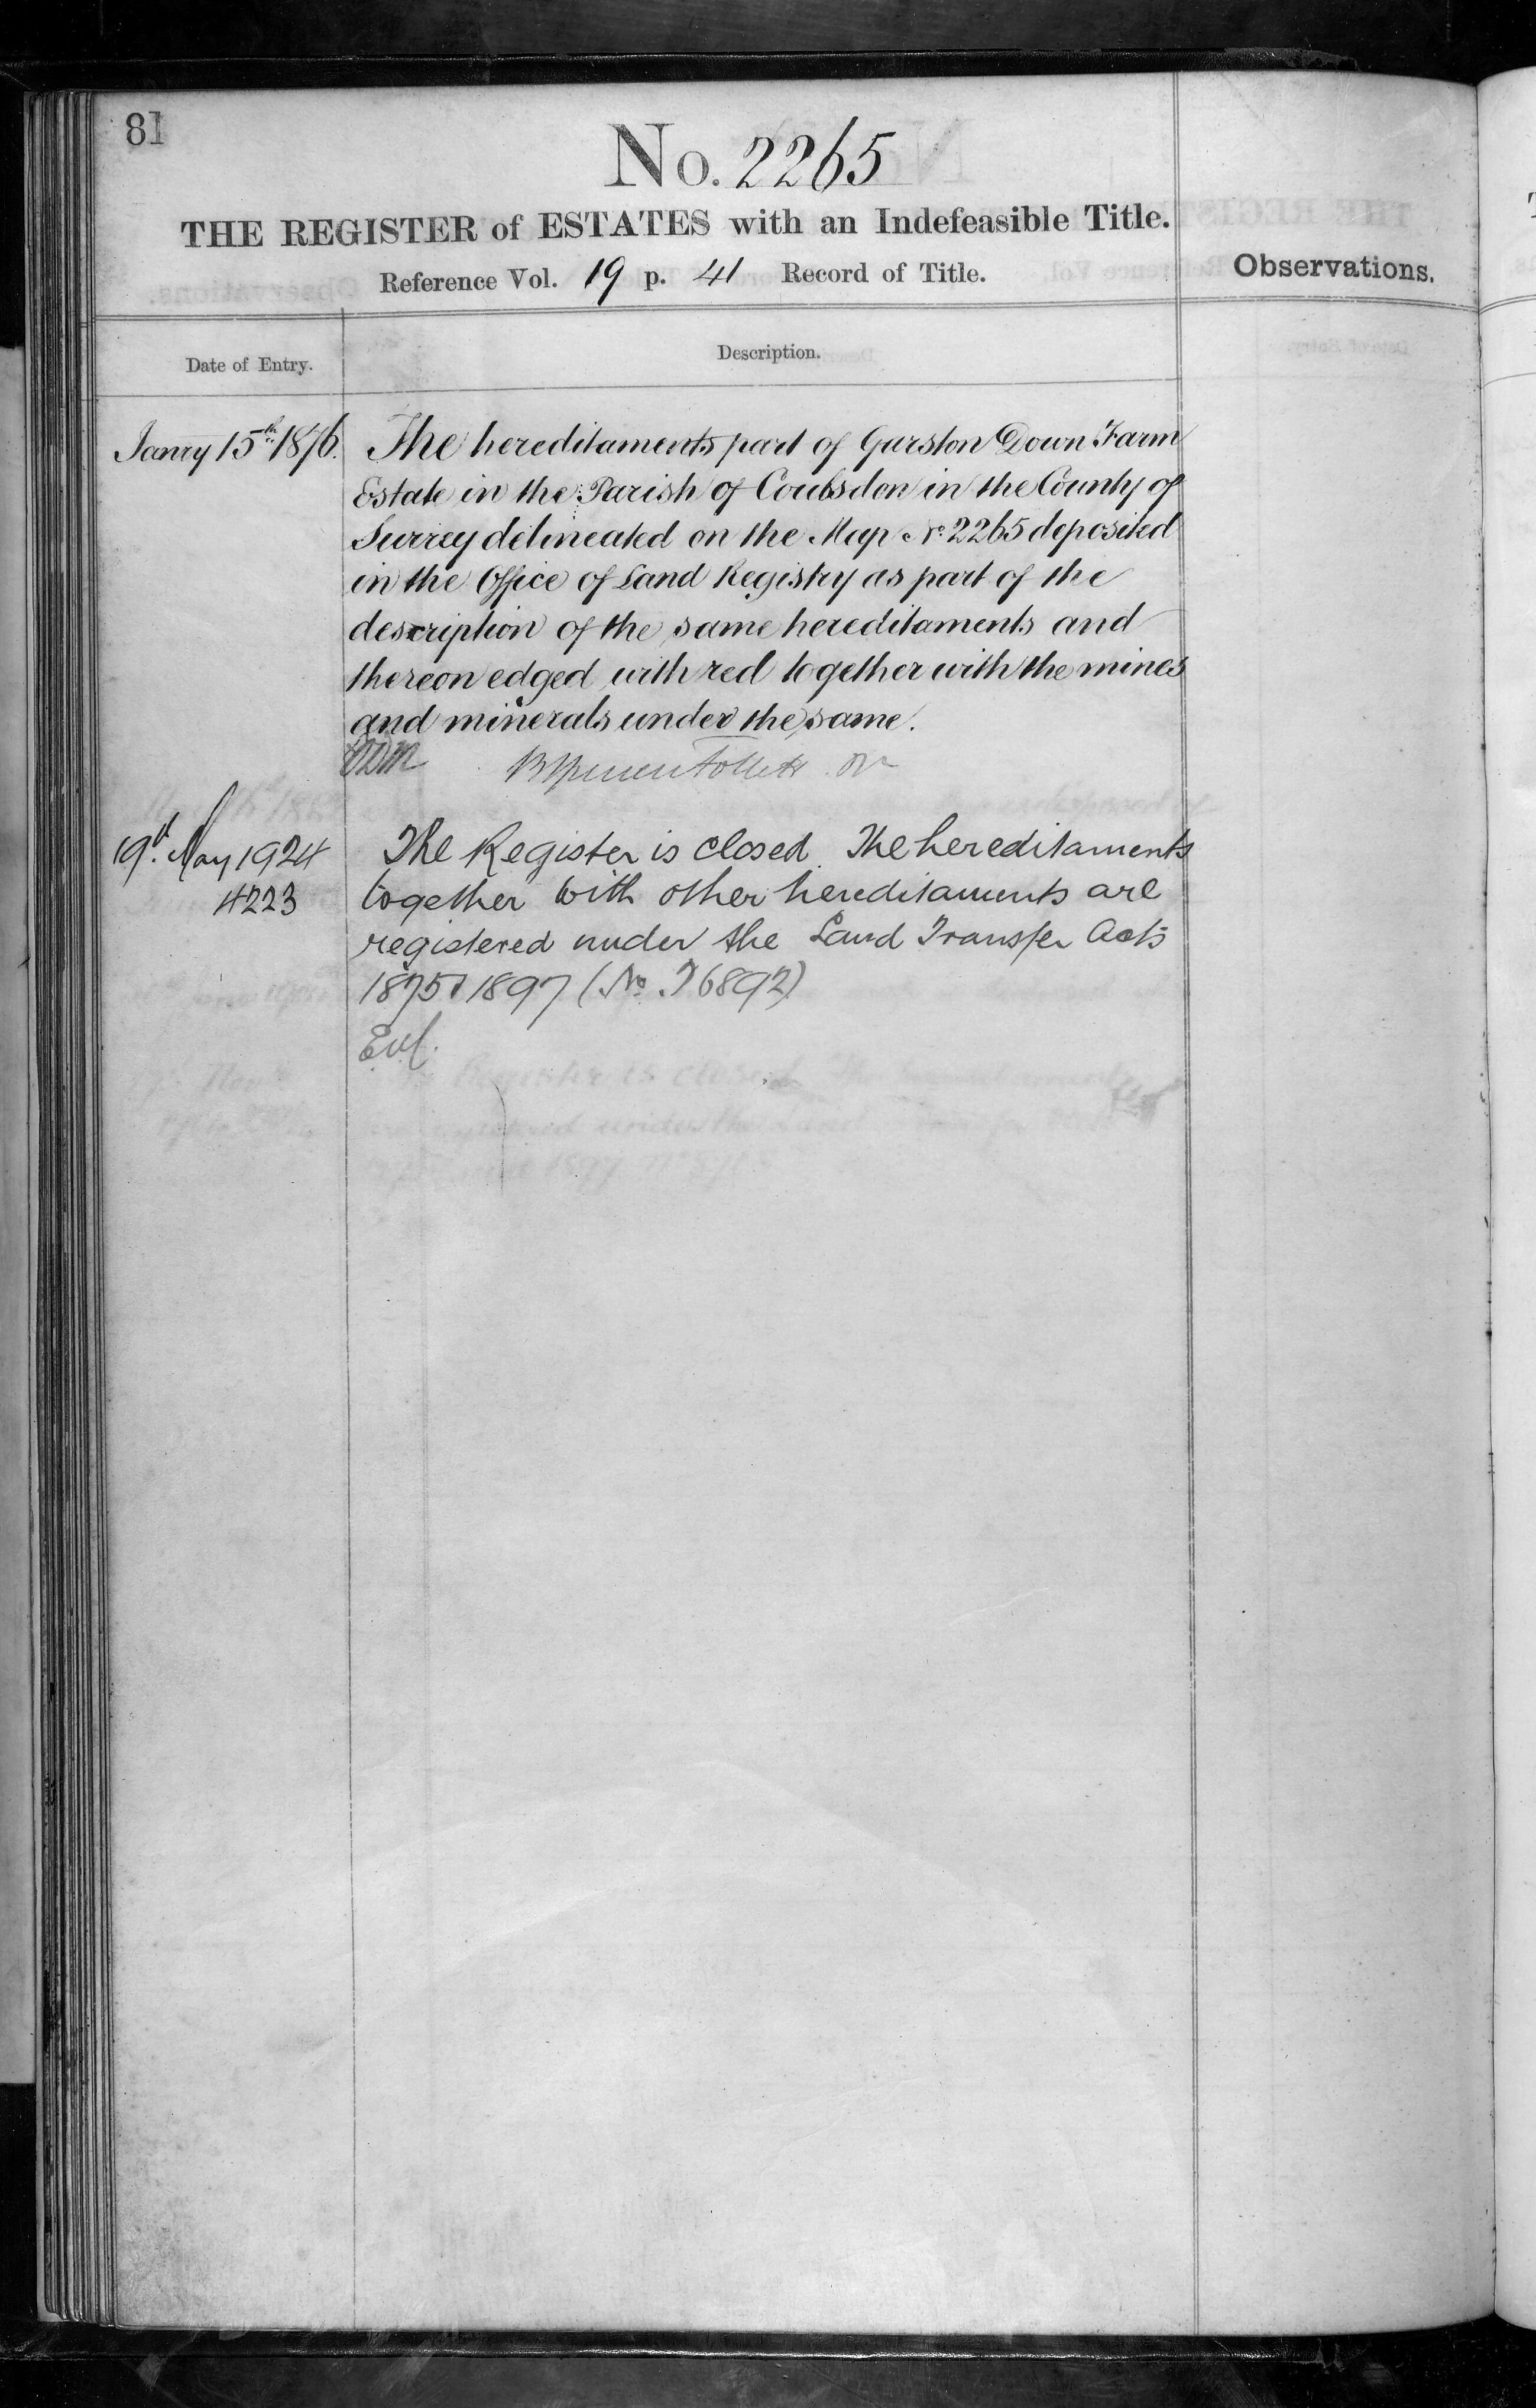 81
No. 2265
THE REGISTER of ESTATES with an Indefeasible Title.
Reference Vol. 19 p. 41 Record of Title.
Observations.
Date of Entry.
Description.
Janry 15th 1876. The hereditaments part of Garston Down Farm
Estate in the Parish of Coulsdon in the County of
Surrey delineated on the Map No. 2265 deposited
in the Office of Land Registry as part of the
description of the same hereditaments and
thereon edged with red together with the mines
and minerals under the same.
Follett
19th May 1924 The Register is closed. The hereditaments
4223 together with other hereditaments are
registered under the Land Transfer Acts
1875 & 1897 (No. 36892)